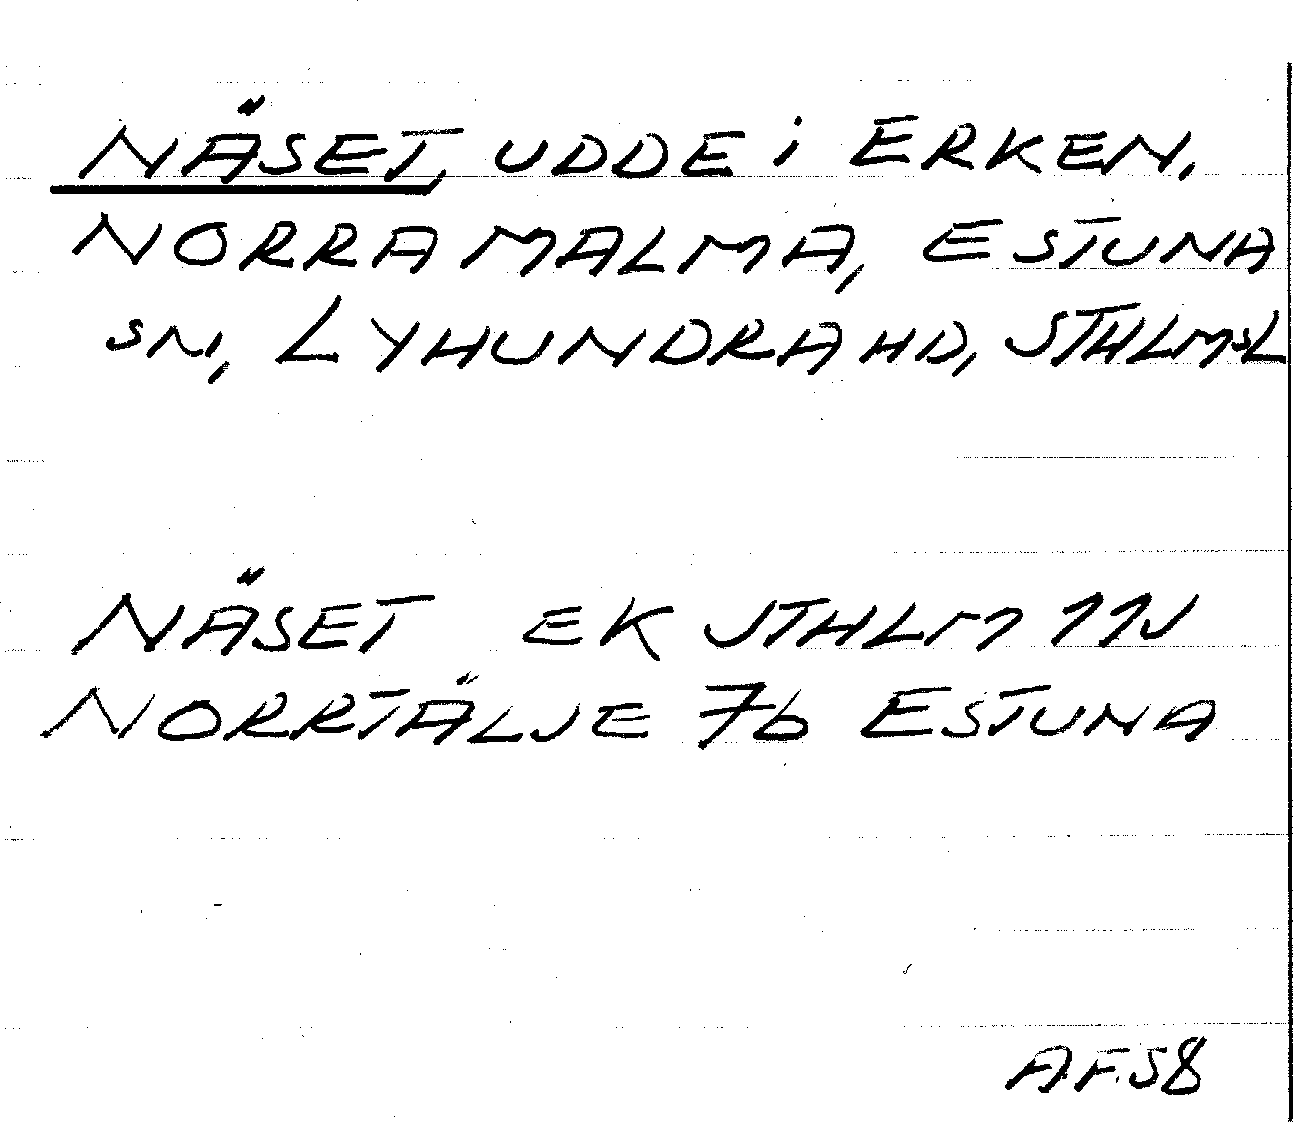 NÄSET, UDDE i ERKEN,
NORRA MALMA, ESTUNA
SN, LYHUNDRA HD, STHLMSL
NÄSET EK STHLM 11J
NORRTÄLJE 7b ESTUNA
A.F. 58